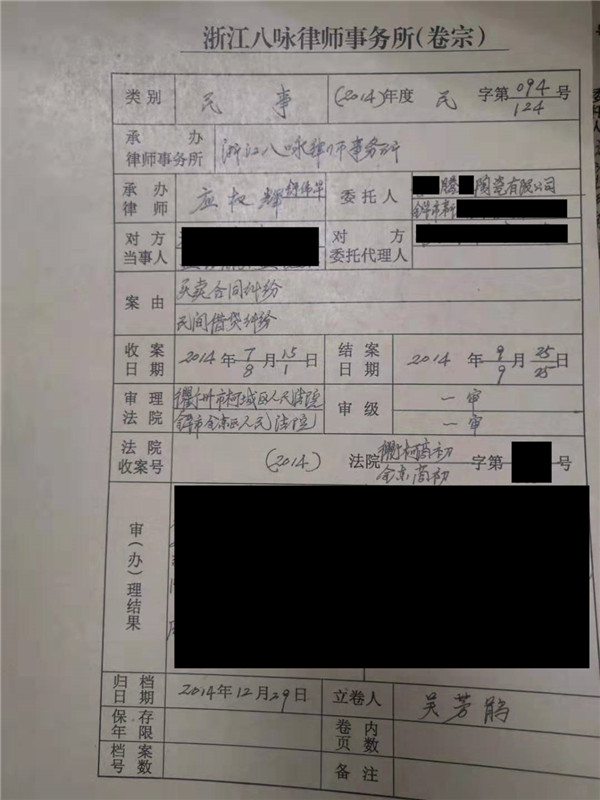 浙江八咏律师事务所(卷宗)
类别 民事 (2014)年度 民 字第 094 号
124
承办律师事务所 浙江八咏律师事务所
承办律师 应权辉 委托人 腾 陶瓷有限公司
对方当事人 对方委托代理人
案由 买卖合同纠纷
民间借贷纠纷
收案日期 2014年 7月15日 结案日期 2014年 9月25日
8 1 9 25
审理法院 衢州市柯城区人民法院 审级 一审
金华市金东区人民法院 一审
法院收案号 (2014) 法院 衢柯商初 字第 号
金东商初
审(办)理结果
归档日期 2014年12月29日 立卷人 吴芳鹃
保存年限 卷内页数
档案号数 备注